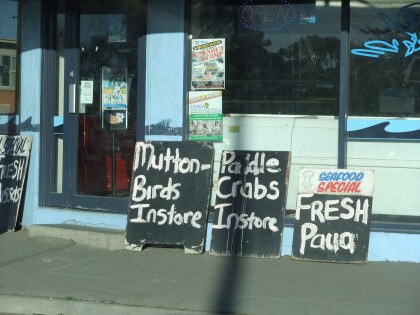 OPEN
Mutton-
Birds
Instore
Paddle
Crabs
Instore
SEAFOOD
SPECIAL
FRESH
Paua
SPECIAL
FRESH